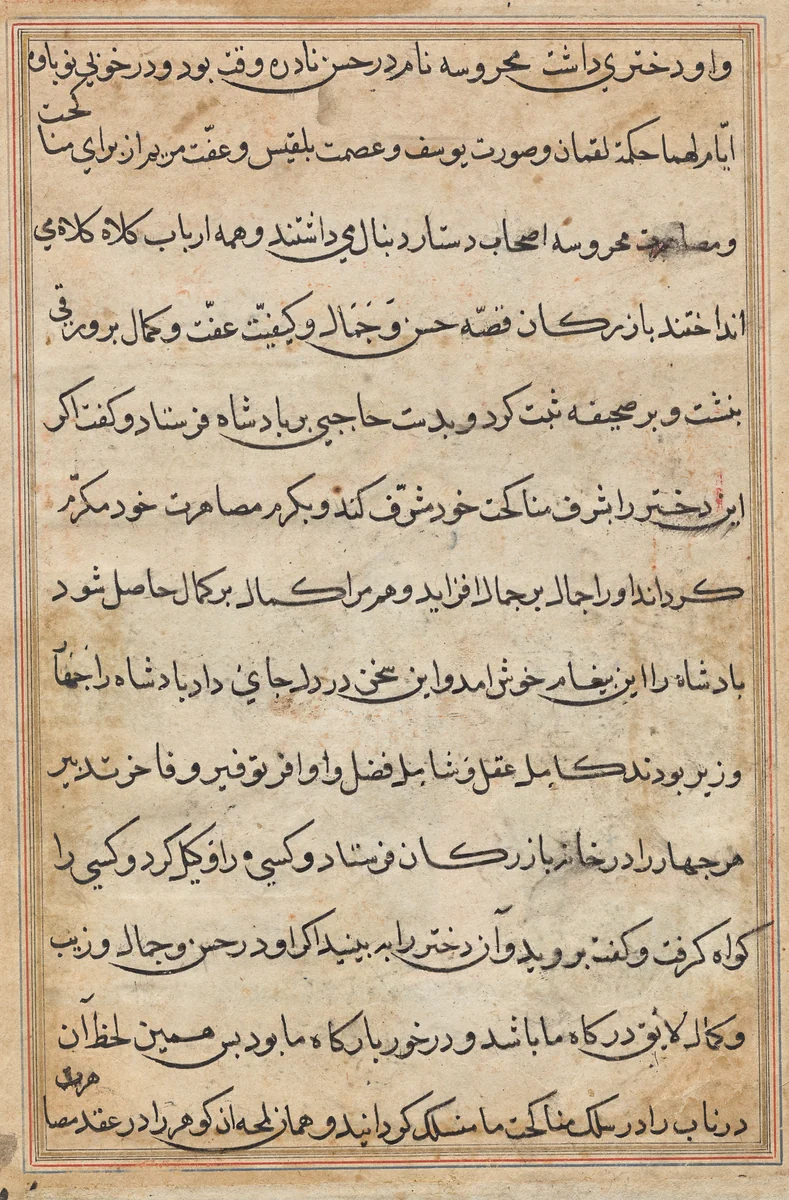 و او دختري داشت محروسه نام در حسن نادره وقت بود و در خوبي نوباوه
ایّام لهما حکمة لقمان و صورت یوسف و عصمت بلقیس و عفّت مریم از برای مناکحت
و مصاهرت محروسه اصحاب دستار دنبال می داشتند و همه ارباب کلاه کلاه می
انداختند بازرکان قصّه حسن وَ جَمَال و کیفیّت عفّت و کمال بر ورقی
بنشت و بر صحیفه ثبت کرد و بدست حاجبی بر بادشاه فرستاد و کفت اکر
این دختر را بشرف مناکحت خود مشرّف کند و بکرم مصاهرت خود مکرّم
کرداند اورا جمال بر جمال افزاید و هم مرا کمال بر کمال حاصل شود
بادشاه را این بیغام خوش امد و این سخن در دل جای داد بادشاه را جهار
وزیر بودند کامل عقل و شامل فضل و اوافر توفیر و فاخر تدبیر
هر جهار را در خانه بازرکان فرستاد و کسی را وکیل کرد و کسی را
کواه کرفت و کفت بروید و آن دختر را به بینید اکر او در حسن و جمال و زیب
و کمال لایق درکاه ما باشد و در خور بارکاه ما بود بس همین لحظ آن
در ناب را در سلک مناکحت ما منسلک کردانید و همان لمحه ان کوهر را در عقد مصاهرت